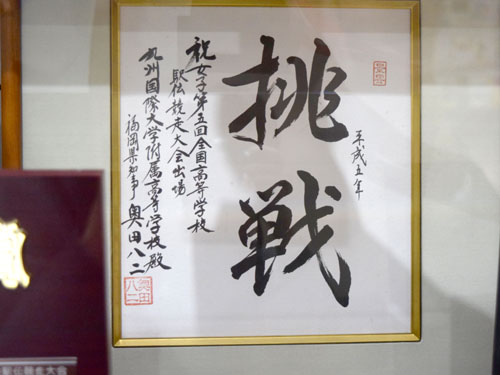 平成五年
挑戦
祝女子第五回全国高等学校
駅伝競走大会出場
九州国際大学附属高等学校殿
福岡県知事 奥田八二
奥田
八二
駅伝競走大会